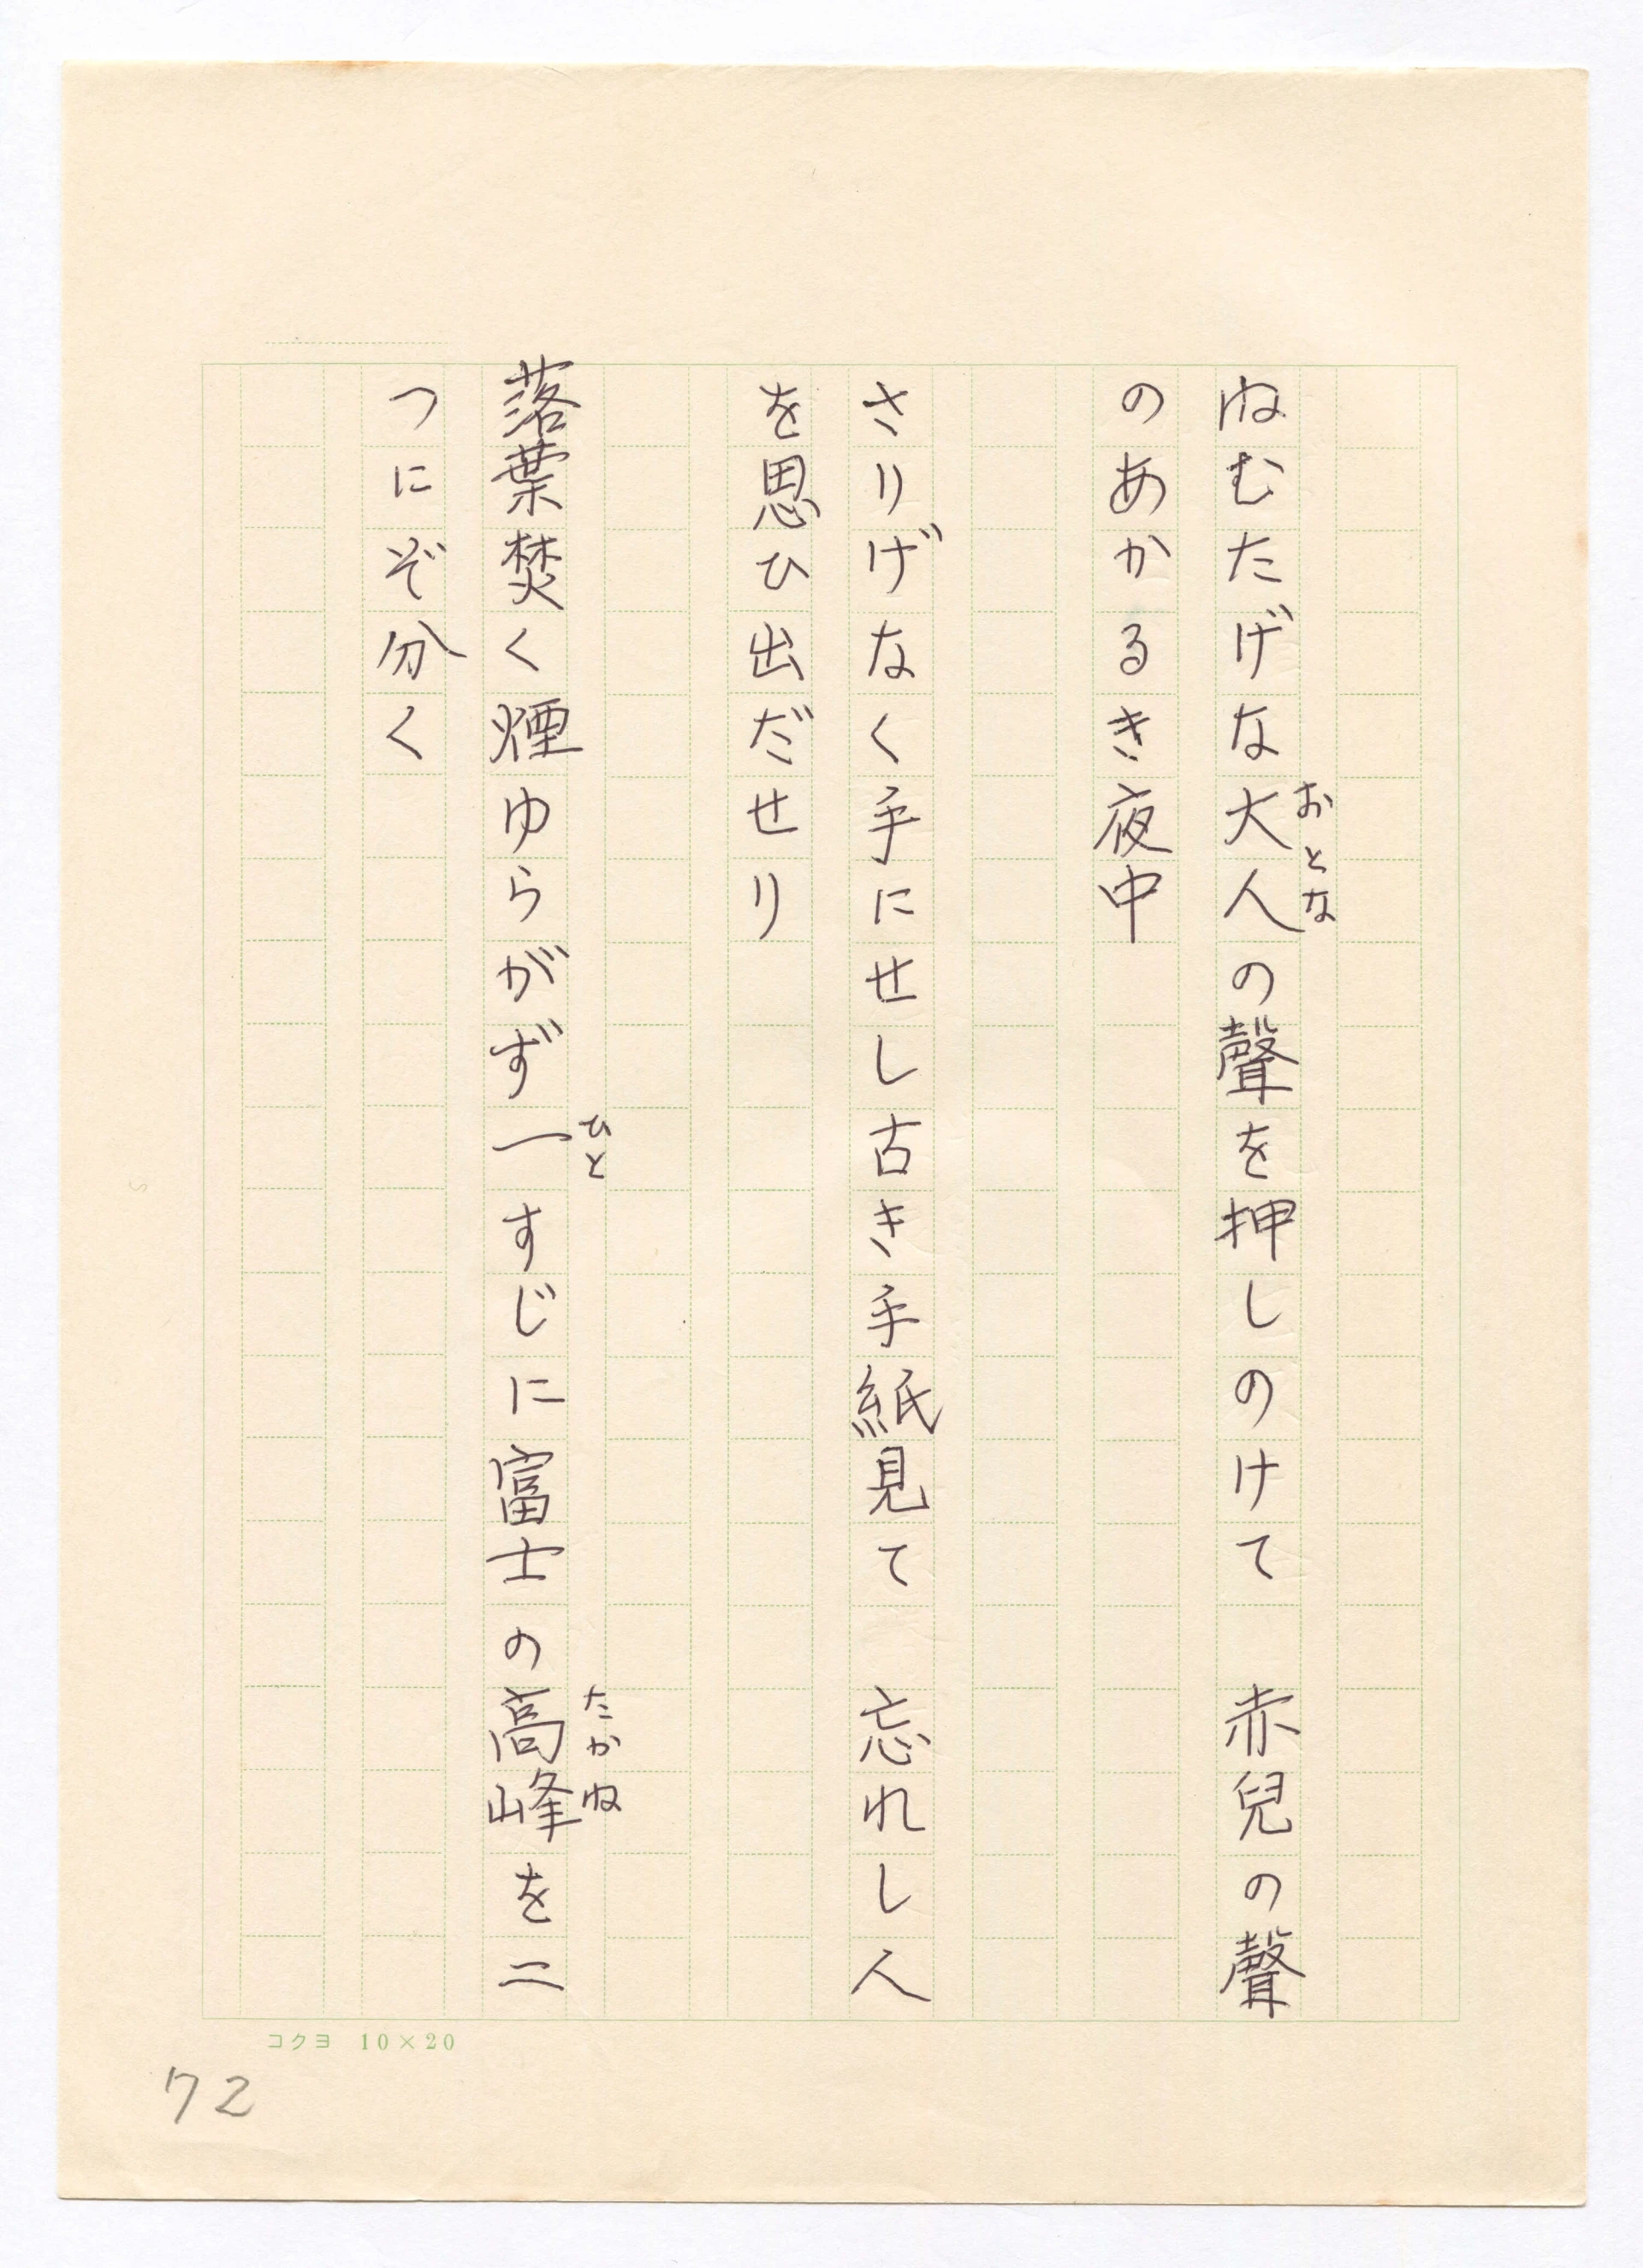 ねむたげな大人の聲を押しのけて　赤兒の聲
おとな
のあかるき夜中
さりげなく手にせし古き手紙見て　忘れし人
を思ひ出だせり
落葉焚く煙ゆらがず一すじに富士の高峰を二
ひと
たかね
つにぞ分く
コクヨ 10×20
72